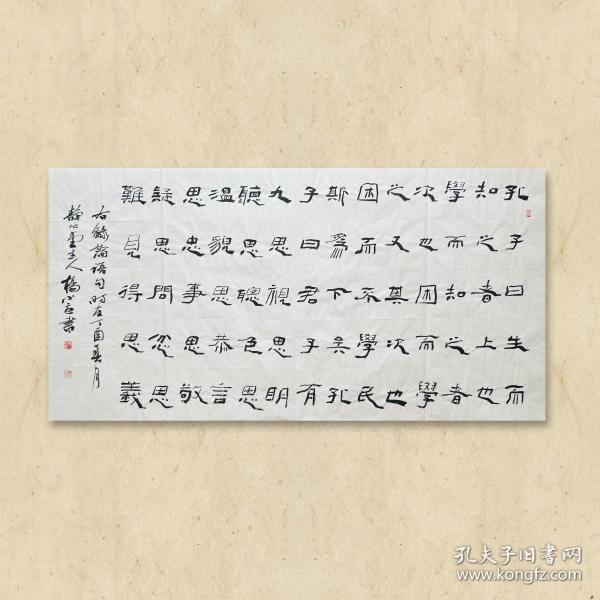 孔子曰生而
知之者上也
學而知之者
次也困而學
之又其次也
困而不學民
斯爲下矣孔
子曰君子有
九思視思明
聽思聰色思
温貌思恭言
思忠事思敬
疑思問忿思
難見得思義
右錄論語句時在丁酉春月
靜心堂主人楊書
孔夫子旧书网
www.kongfz.com